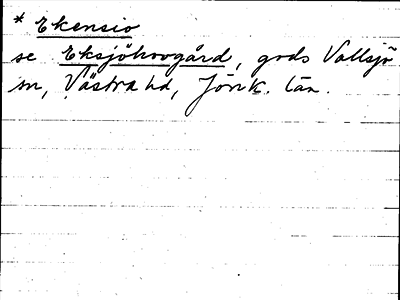 * Ekensio
se Eksjöhovgård, gods Vallsjö
sn, Västra hd, Jönk. län.